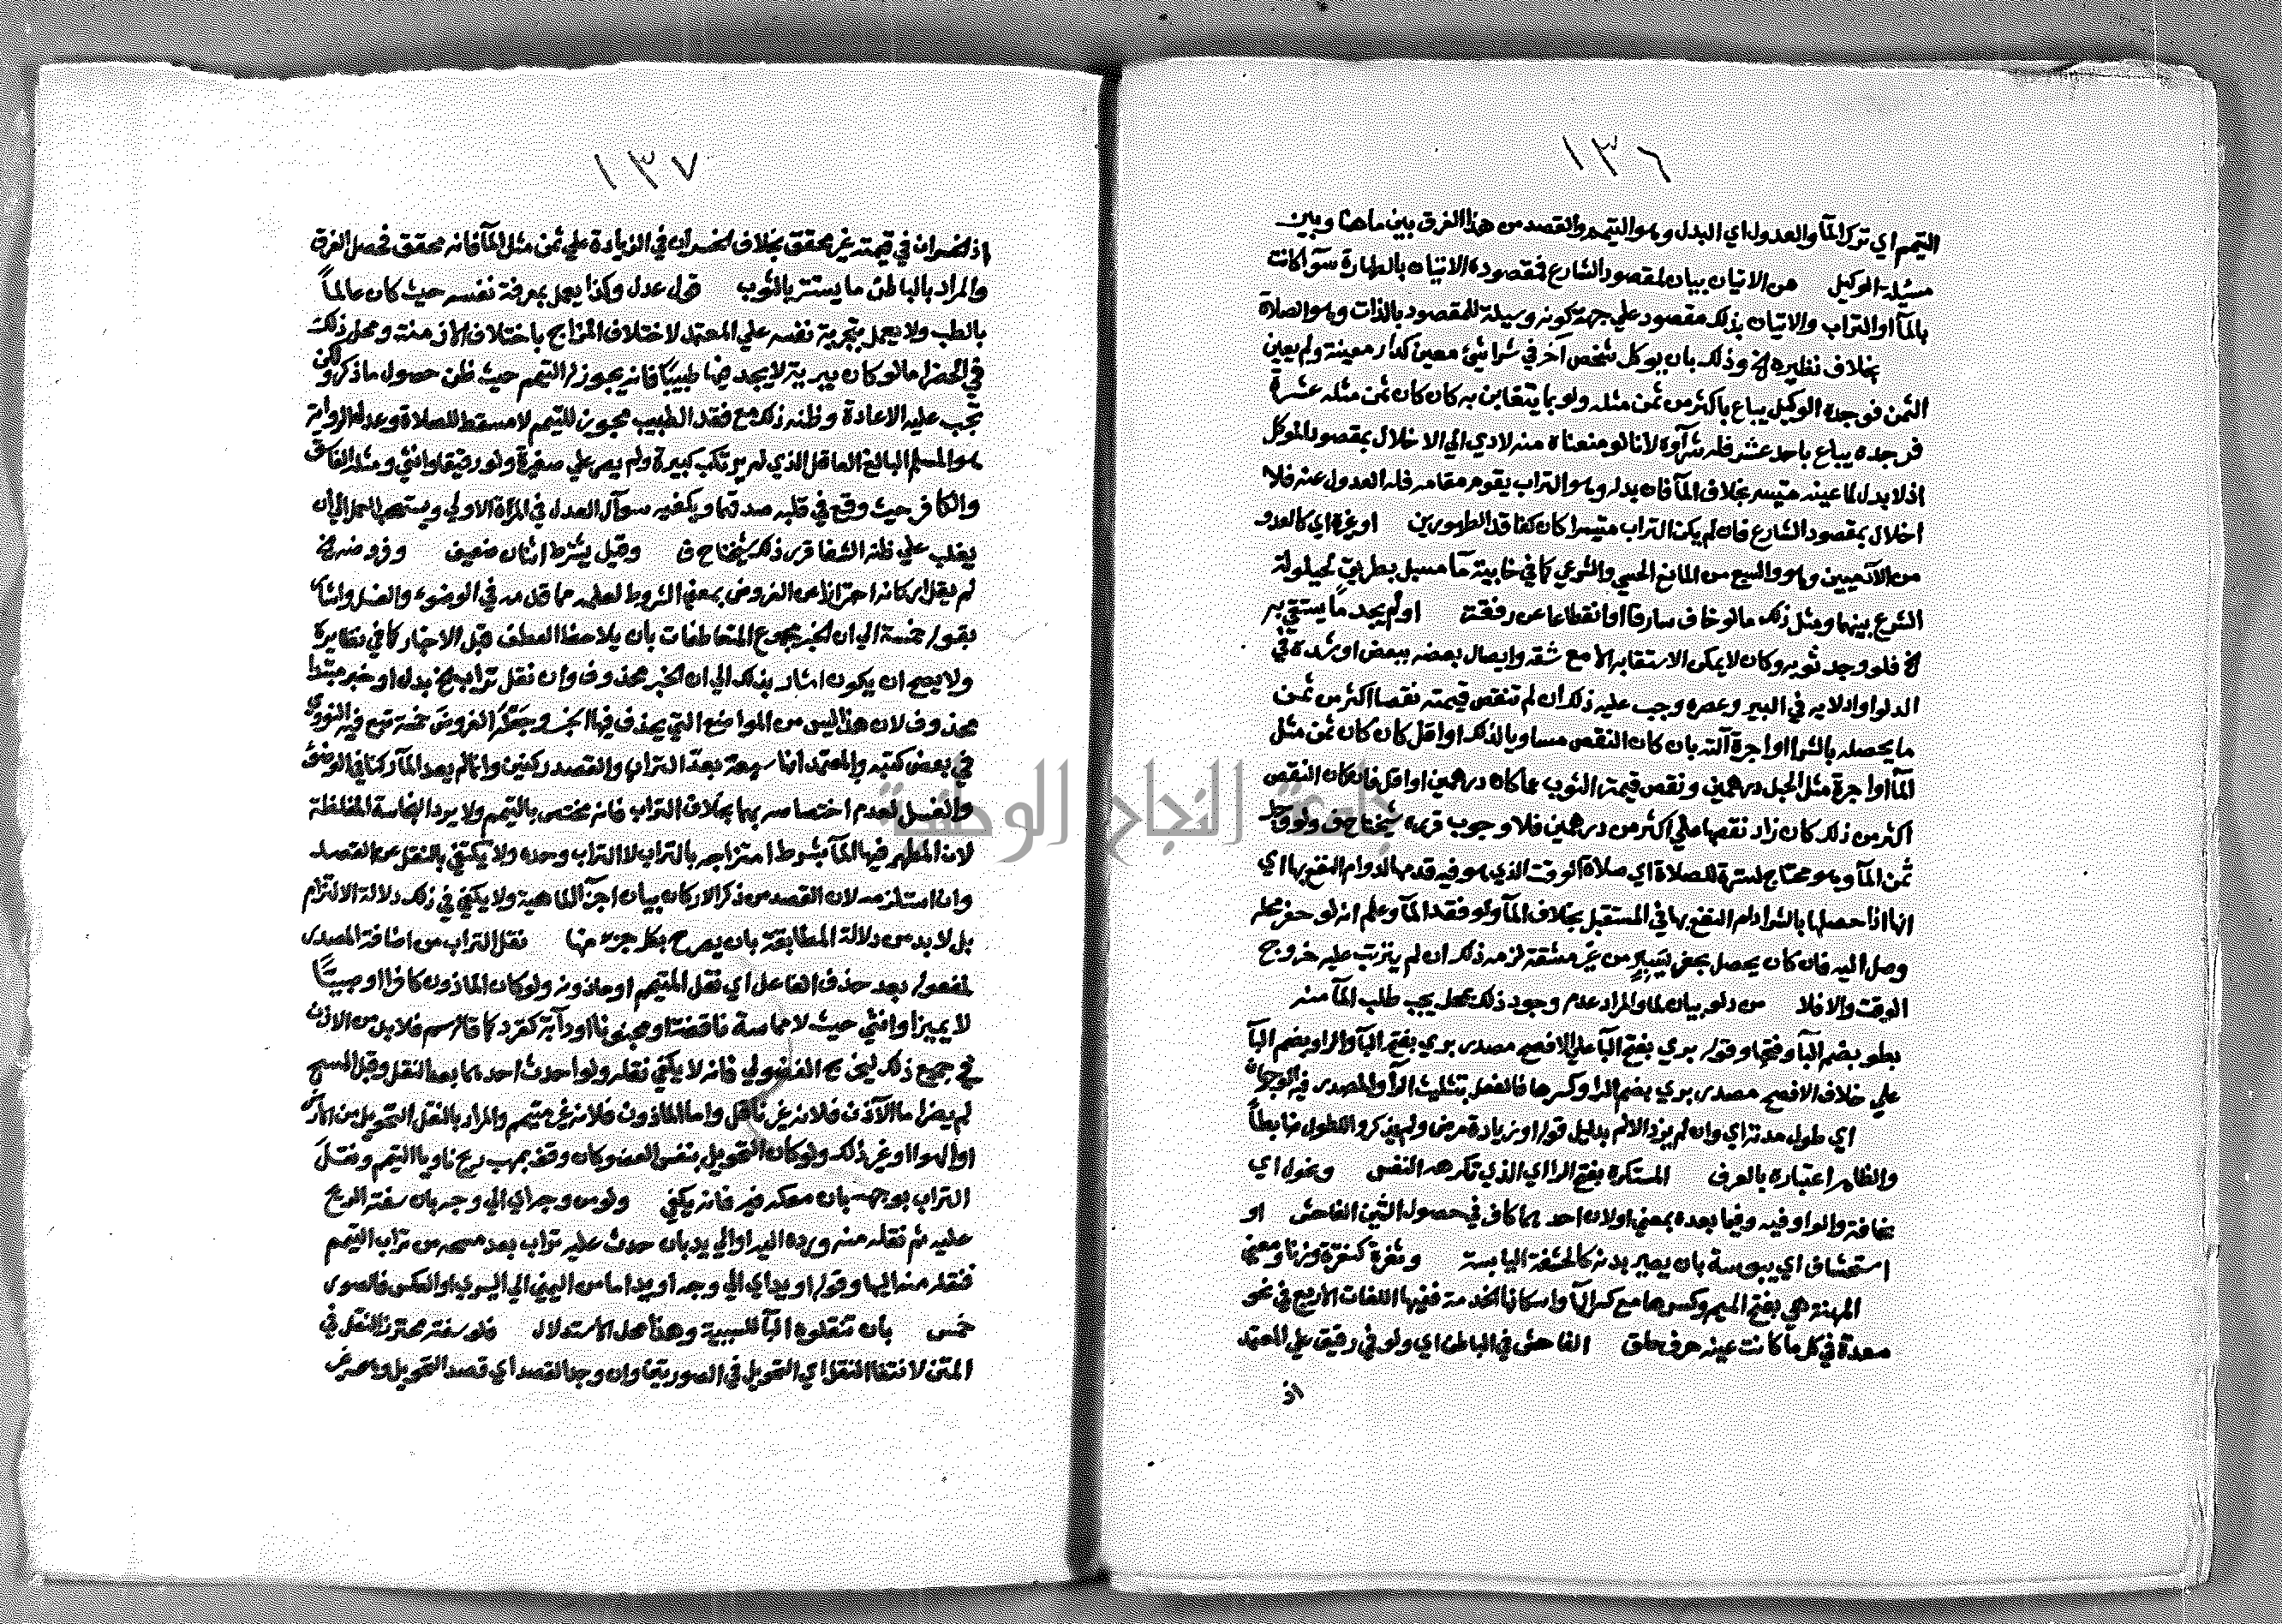 ١٣٦
التيمم اي ترك المآ والعدول اي البدل وهو التيمم والقصد من هذا الفرق بين ما هنا وبين
مسئلة الوكيل من الاتيان بيان لمقصود الشارع فمقصوده الاتيان بالطهارة سوآ كانت
بالمآ او التراب والاتيان بذلك مقصود علي جهة كونه وسيلة للمقصود بالذات وهو الصلاة
بخلاف نظيره الخ وذلك بان يوكل شخص آخر في شرا شئ معين كدار معينة ولم يعين
الثمن فوجده الوكيل يباع باكثر من ثمن مثله ولو بما يتغابن به كان كان ثمن مثله عشرة
فوجده يباع باحد عشر فله شرآوه لانا لو منعناه منه لادي الي الاخلال بمقصود الموكل
اذ لا بدل لما عينه متيسر بخلاف المآ فان بدله وهو التراب يقوم مقامه فله العدول عنه فلا
اخلال بمقصود الشارع فان لم يكن التراب متيسرا كان كفاقد الطهورين او غيره اي كالعدو
من الآدميين وهو والسبع من المانع الحسي والشرعي كما في خابية مآ مسبل بطريق لحيلولة
الشرع بينهما ومثل ذلك ما لو خاف سارقا او انقطاعا عن رفقته او لم يجد ما يستقي به
الخ فلو وجد ثوبه وكان لا يمكن الاستقا به الا مع شقه وايصال بعضه ببعض او شده في
الدلو او ادلايه في البير وعصره وجب عليه ذلك ان لم تنقص قيمته نقصا اكثر من ثمن
ما يحصله بالشرا او اجرة آلته بان كان النقص مساويا لذلك او اقل كان كان ثمن مثل
المآ او اجرة مثل الحبل درهمين ونقص قيمة الثوب عما كان درهمين او اقل فان كان النقص
اكثر من ذلك كان زاد نقصها علي اكثر من درهمين فلا وجوب قرره شيخنا ح ف ولو وجد
ثمن المآ وهو محتاج لسترة للصلاة اي صلاة الوقت الذي هو فيه قدمها لدوام النفع بها اي
انها اذا حصلها بالشرا دام النفع بها في المستقبل بخلاف المآ ولو فقد المآ وعلم انه لو حفر محله
وصل اليه فان كان يحصل بحفر يسير من غير مشقة لزمه ذلك ان لم يترتب عليه خروج
الوقت والا فلا من دلو بيان لما والمراد عدم وجود ذلك بمحل يجب طلب المآ منه
بطو بضم البآ وفتحها وقوله بري بفتح البآ علي الافصح مصدر بري بفتح البآ والرا وبضم البآ
علي خلاف الافصح مصدر بري بضم الرا وكسرها فالفعل بتثليث الرآ والمصدر فيه الوجهان
اي طول مدته اي وان لم يزد الالم بدليل قوله او زيادة مرض ولم يذكروا للطول ضابطاً
والظاهر اعتباره بالعرف المستكره بفتح الرا اي الذي تكرهه النفس ونحول اي
نحافة والواو فيه وفيما بعده بمعني او لان احدهما كاف في حصول الشين الفاحش او
استحشاف اي يبوسة بان يصير بدنه كالحشفة اليابسة وثغرة كنقرة وزنا ومعني
المهنة هي بفتح الميم وكسرها مع كسر الهآ واسكانها الخدمة ففيها اللغات الاربع في نحو
معدة في كل ما كانت عينه حرف حلق الفاحش في الباطن اي ولو في رقيق علي المعتمد
اذ
١٣٧
اذ الخسران في قيمته غير محقق بخلاف الخسران في الزيادة علي ثمن مثل المآ فانه محقق فحصل الفرق
والمراد بالباطن ما يستتر بالثوب قول عدل وكذا يعمل بمعرفة نفسه حيث كان عالماً
بالطب ولا يعمل بتجربة نفسه علي المعتمد لاختلاف المزاج باختلاف الازمنة ومحل ذلك
في الحضر اما لو كان ببرية لا يجد فيها طبيبا فانه يجوز له التيمم حيث ظن حصول ما ذكر ولكن
تجب عليه الاعادة وظنه ذلك مع فقد الطبيب مجوز للتيمم لا مسقط للصلاة وعدل الرواية
هو المسلم البالغ العاقل الذي لم يرتكب كبيرة ولم يصر علي صغيرة ولو رقيقا وانثي ومثله الفاسق
والكافر حيث وقع في قلبه صدقهما ويكفيه سوآل العدل في المرآة الاولي ويستصحب العمل الي ان
يغلب علي ظنه الشفا قرر ذلك شيخنا ح ف وقيل يشترط اثنان ضعيف وفروضه الخ
لم يقل اركانه احترازا عن الفروض بمعني الشروط لعلمه مما قدمه في الوضوء والغسل واشار
بقوله خمسة الي ان الخبر مجموع المتعاطفات بان يلاحظ العطف قبل الاخبار كما في نظايره
ولا يصح ان يكون اشار بذلك الي ان الخبر محذوف وان نقل تراب الخ بدل او خبر مبتدا
محذوف لان هذا ليس من المواضع التي يحذف فيها الخبر وجَعْلُه الفروض خمسة تبع فيه النووي
في بعض كتبه والمعتمد انها سبعة بعدّ التراب والقصد ركنين وانما لم يعد المآ ركنا في الوضوء
والغسل لعدم اختصاصه بهما بخلاف التراب فانه مختص بالتيمم ولا يرد النجاسة المغلظة
لان المطهر فيها المآ بشرط امتزاجه بالتراب لا التراب وحده ولا يكتفي بالنقل عن القصد
وان استلزمه لان القصد من ذكر الاركان بيان اجزآ الماهية ولا يكفي في ذلك دلالة الالتزام
بل لا بد من دلالة المطابقة بان يصرح بكل جزء منها نقل التراب من اضافة المصدر
لمفعوله بعد حذف الفاعل اي نقل المتيمم او ماذونه ولو كان الماذون كافرا او صبيّاً
لا يميز او انثي حيث لا مماسة ناقضة او مجنونا او دآبة كقرد كما قاله سم فلا بد من الاذن
في جميع ذلك ليخرج الفضولي فانه لا يكفي نقله ولو احدث احدهما بعد النقل وقبل المسح
لم يضر اما الآذن فلانه غير ناقل واما الماذون فلانه غير متيمم والمراد بالنقل التحويل من الارض
او الهوا او غير ذلك ولو كان التحويل بنفس العضو كان وقف بمهب ريح ناويا التيمم ونقل
التراب بوجهه بان معكه فيه فانه يكفي ولو من وجه اي الي وجه بان سفته الريح
عليه ثم نقله منه ورده اليه او الي يد بان حدث عليه تراب بعد مسحه من تراب التيمم
فنقله منه اليها وقوله او يد اي الي وجه او يد اما من اليمني الي اليسري او العكس فالصور
خمس بان تنقلوه البآ للسببية وهذا محل الاستدلال فلو سفته محترز النقل في
المتن لانتفا النقل اي التحويل في الصورتين وان وجد القصد اي قصد التحويل وبمعرض